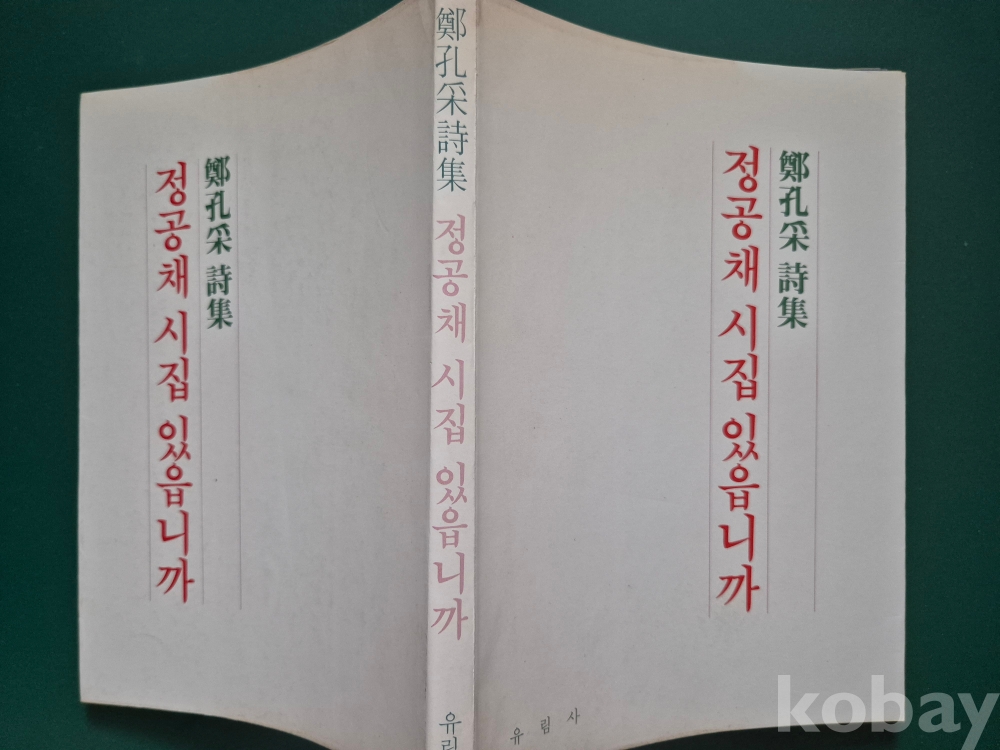 鄭孔采 詩集
정공채 시집 있읍니까
鄭孔采詩集
정공채 시집 있읍니까
유림
鄭孔采 詩集
정공채 시집 있읍니까
유림사
kobay